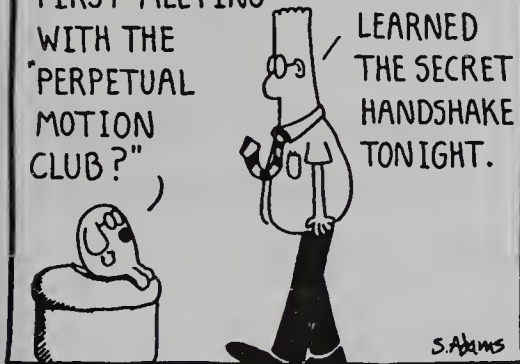 FIRST MEETING
WITH THE
"PERPETUAL
MOTION
CLUB?"
LEARNED
THE SECRET
HANDSHAKE
TONIGHT.
S.Adams